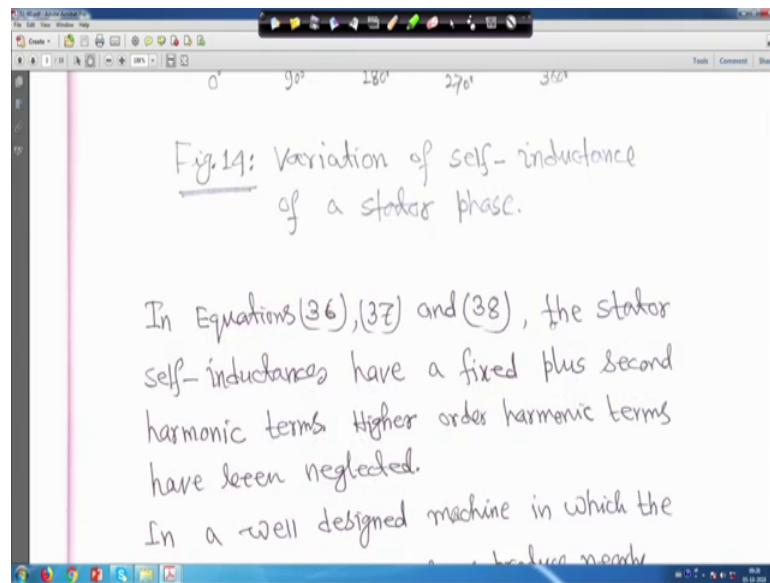 File Edit View Window Help
Create
Tools Comment Share
0° 90° 180° 270° 360°
Fig.14: Variation of self-inductance
of a stator phase.
In Equations (36), (37) and (38), the stator
self-inductances have a fixed plus second
harmonic terms. Higher order harmonic terms
have been neglected.
In a well designed machine in which the
produce nearly